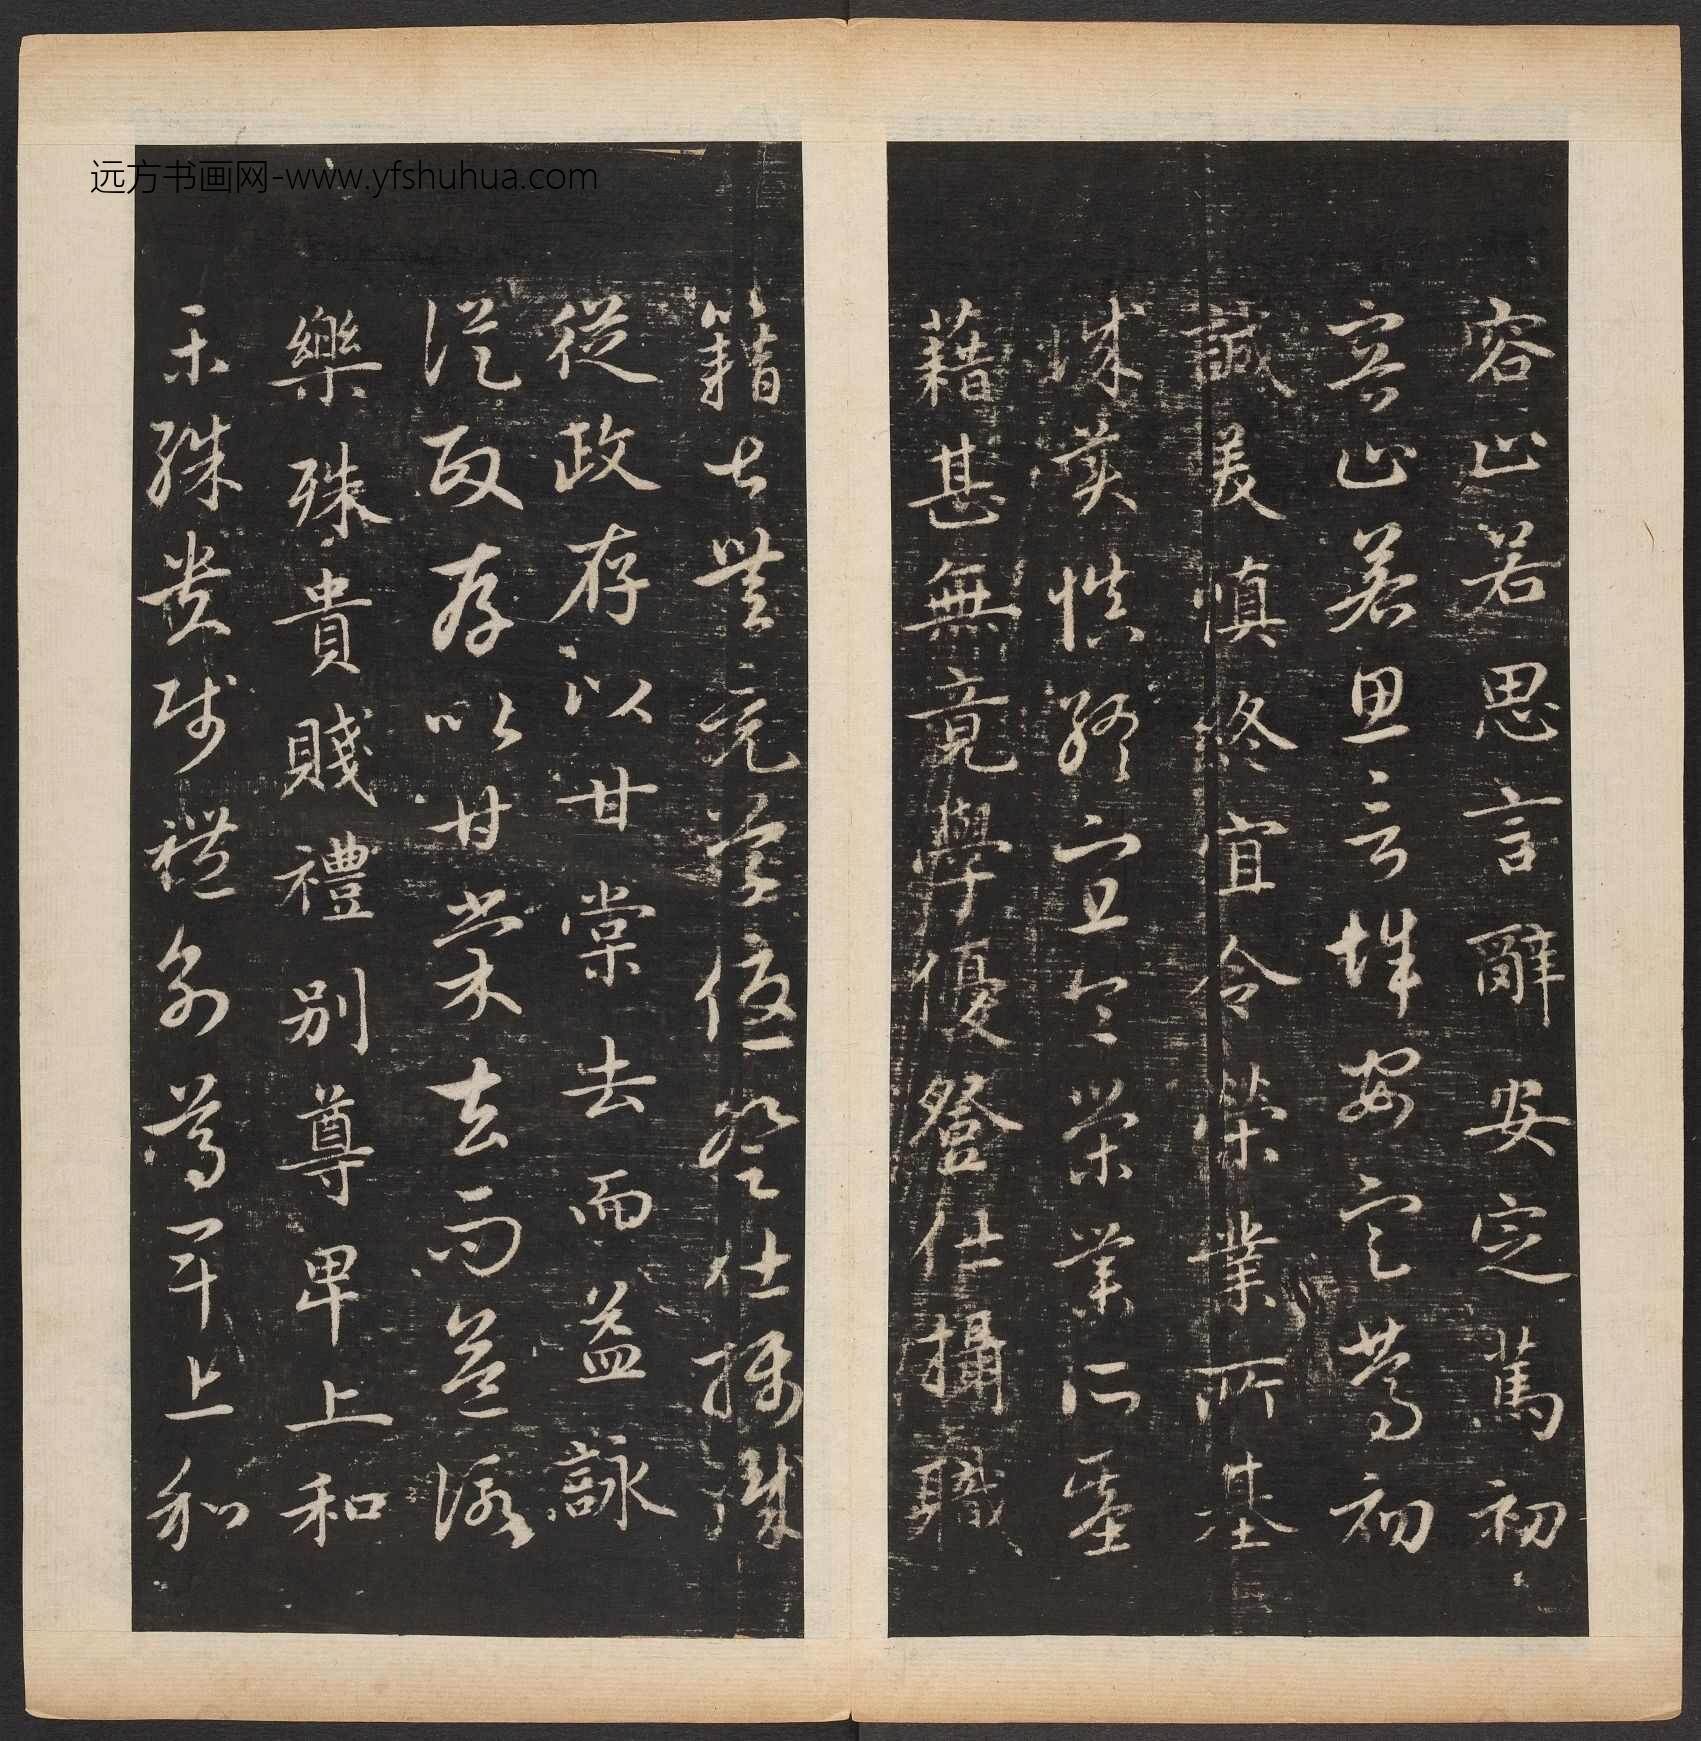 远方书画网-www.yfshuhua.com
容止若思言辭安定篤初
容止若思言辭安定篤初
誠美慎終宜令榮業所基
誠美慎終宜令榮業所基
藉甚無竟學優登仕攝職
籍甚無竟學優登仕攝職
從政存以甘棠去而益詠
從政存以甘棠去而益詠
樂殊貴賤禮別尊卑上和
樂殊貴賤禮別尊卑上和